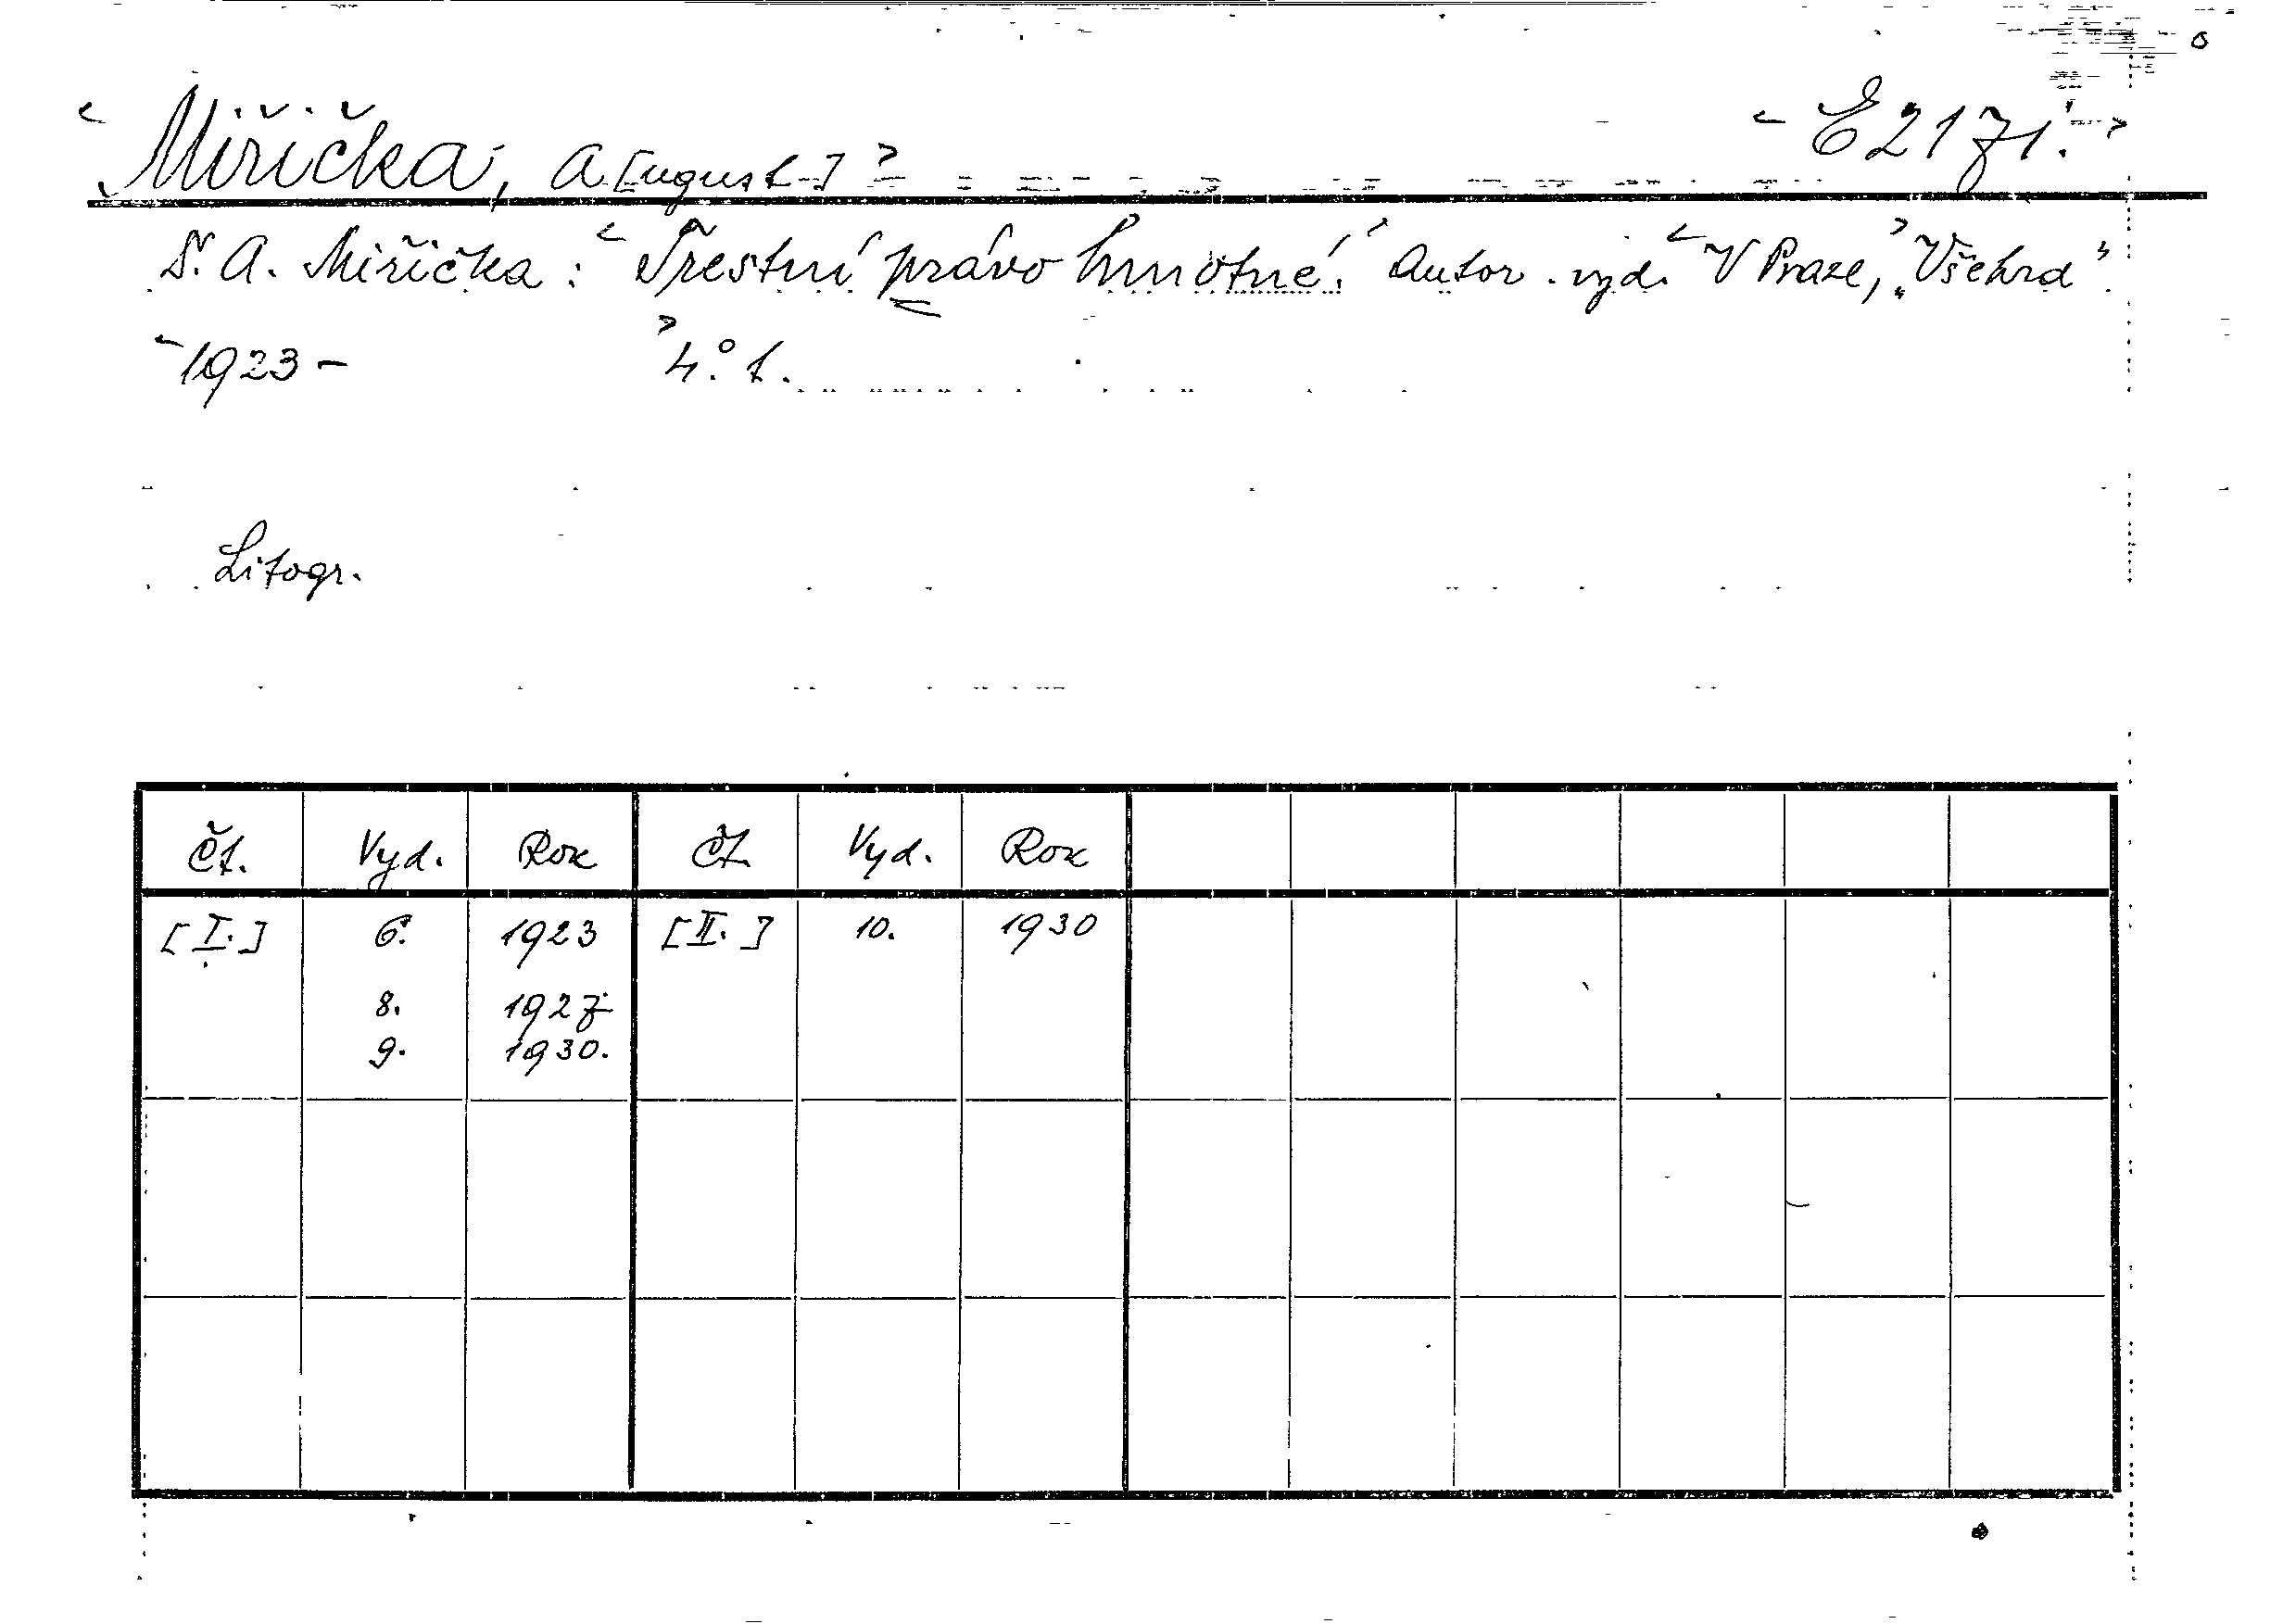 Miřička, A[ugust] E2171.
D. A. Miřička: Trestní právo hmotné. Autor. vyd. V Praze, „Všehrd”.
1923 – 4°. t.
Litogr.
Čt. Vyd. Rok Čt. Vyd. Rok
[I.] 6. 1923 [II.] 10. 1930
8. 1927
9. 1930.